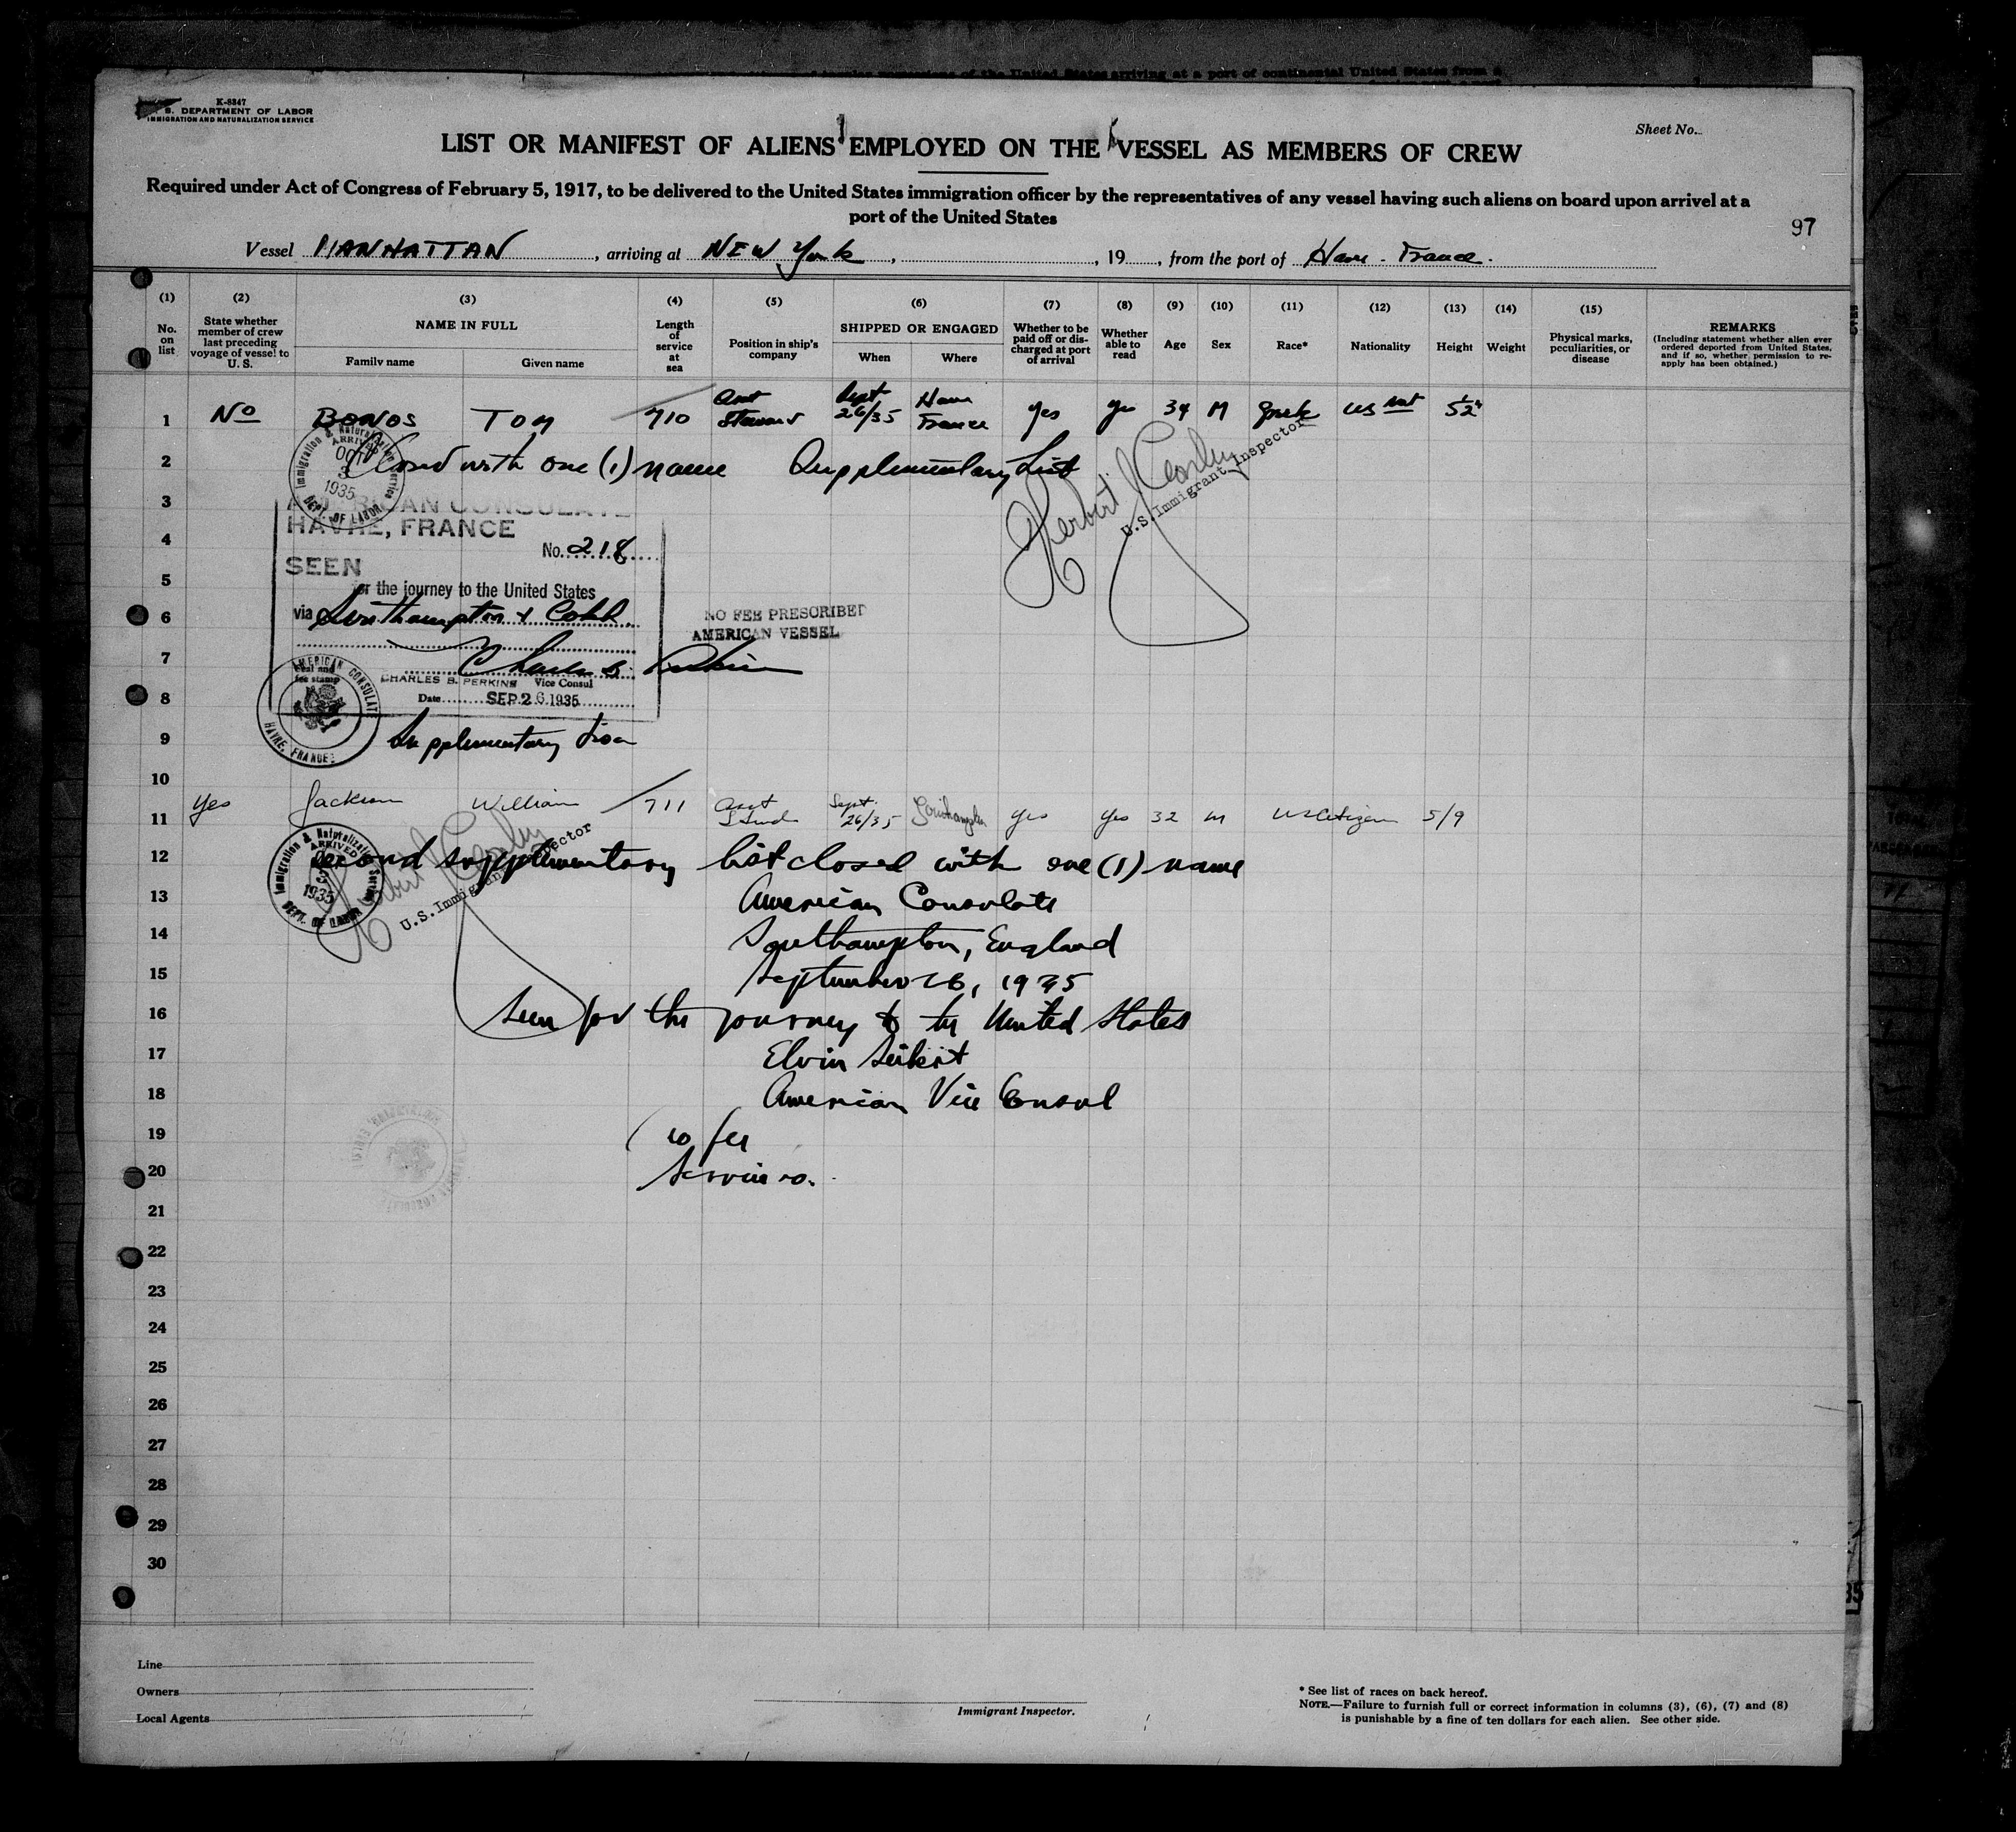 K-8347
S. DEPARTMENT OF LABOR
IMMIGRATION AND NATURALIZATION SERVICE
Sheet No.
LIST OR MANIFEST OF ALIENS EMPLOYED ON THE VESSEL AS MEMBERS OF CREW
Required under Act of Congress of February 5, 1917, to be delivered to the United States immigration officer by the representatives of any vessel having such aliens on board upon arrivel at a
port of the United States
97
Vessel MANHATTAN, arriving at NEW York, , 19 , from the port of Havre - France.
(1) (2) (3) (4) (5) (6) (7) (8) (9) (10) (11) (12) (13) (14) (15)
No. on list
State whether member of crew last preceding voyage of vessel to U. S.
NAME IN FULL
Family name Given name
Length of service at sea
Position in ship's company
SHIPPED OR ENGAGED
When Where
Whether to be paid off or discharged at port of arrival
Whether able to read
Age Sex Race* Nationality Height Weight
Physical marks, peculiarities, or disease
REMARKS
(Including statement whether alien ever ordered deported from United States, and if so, whether permission to re-apply has been obtained.)
1 No BONOS TOM 710 Asst Steward Sept 26/35 Havre France Yes Yes 34 M Greek US Nat
2 Closed with one (1) name Supplementary List
Immigration & Naturalization Service
ARRIVED
OCT 3 1935
DEPT. OF LABOR
U.S. Immigrant Inspector
3
AMERICAN CONSULATE
HAVRE, FRANCE
4
No. 218
SEEN
5
for the journey to the United States
6
via Southampton & Cobh
NO FEE PRESCRIBED
AMERICAN VESSEL
7
Charles B. Perkins
CHARLES B. PERKINS Vice Consul
8
Date SEP 26 1935
AMERICAN CONSULATE
Seal and
fee stamp
HAVRE, FRANCE
9 Supplementary
10
11 Yes Jackson William 711 Asst Stwd Sept. 26/35 Southampton Yes Yes 32 M US Citizen 5/9
12 Second supplementary list closed with one (1) name
Immigration & Naturalization Service
ARRIVED
3 1935
DEPT. OF LABOR
U.S. Immigrant Inspector
13 American Consulate
14 Southampton, England
15 September 26, 1935
16 Seen for the journey to the United States
17 Elvin Seibert
18 American Vice Consul
19 no fee
20
21
22
23
24
25
26
27
28
29
30
Line
Owners
Local Agents
Immigrant Inspector.
* See list of races on back hereof.
NOTE.—Failure to furnish full or correct information in columns (3), (6), (7) and (8)
is punishable by a fine of ten dollars for each alien. See other side.